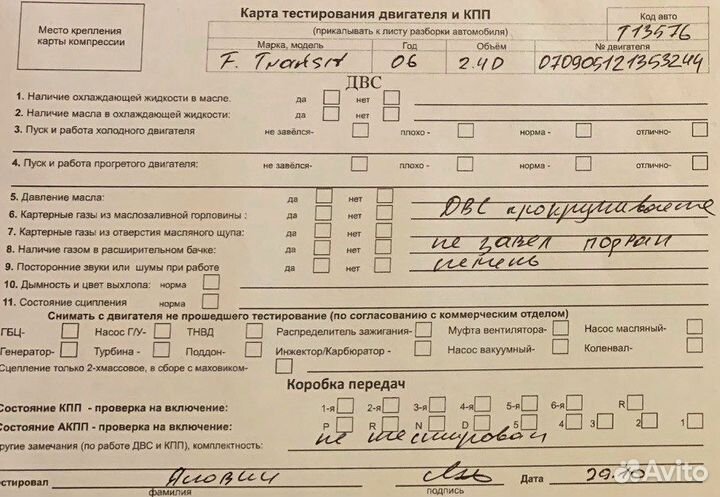 Место крепления карты компрессии
Карта тестирования двигателя и КПП
(прикалывать к листу разборки автомобиля)
Код авто
Т13576
Марка, модель Год Объём № двигателя
F. Transit 06 2.4D 070905121353244
ДВС
1. Наличие охлаждающей жидкости в масле. да нет
2. Наличие масла в охлаждающей жидкости: да нет
3. Пуск и работа холодного двигателя не завёлся- плохо - норма - отлично-
4. Пуск и работа прогретого двигателя: не завёлся- плохо - норма - отлично-
5. Давление масла: да нет
6. Картерные газы из маслозаливной горловины : да нет ДВС прокручивается
7. Картерные газы из отверстия масляного щупа: да нет
8. Наличие газом в расширительном бачке: да нет не завел порван
9. Посторонние звуки или шумы при работе да нет ремень
10. Дымность и цвет выхлопа: норма
11. Состояние сцепления норма
Снимать с двигателя не прошедшего тестирование (по согласованию с коммерческим отделом)
ГБЦ- Насос Г/У- ТНВД Распределитель зажигания- Муфта вентилятора- Насос масляный-
Генератор- Турбина - Поддон- Инжектор/Карбюратор - Насос вакуумный- Коленвал-
Сцепление только 2-хмассовое, в сборе с маховиком-
Коробка передач
Состояние КПП - проверка на включение: 1-я 2-я 3-я 4-я 5-я 6-я R
Состояние АКПП - проверка на включение: P R N D 5 4 3 2 1
другие замечания (по работе ДВС и КПП), комплектность: не тестирован
тестировал Дата 29.10
фамилия подпись
Avito